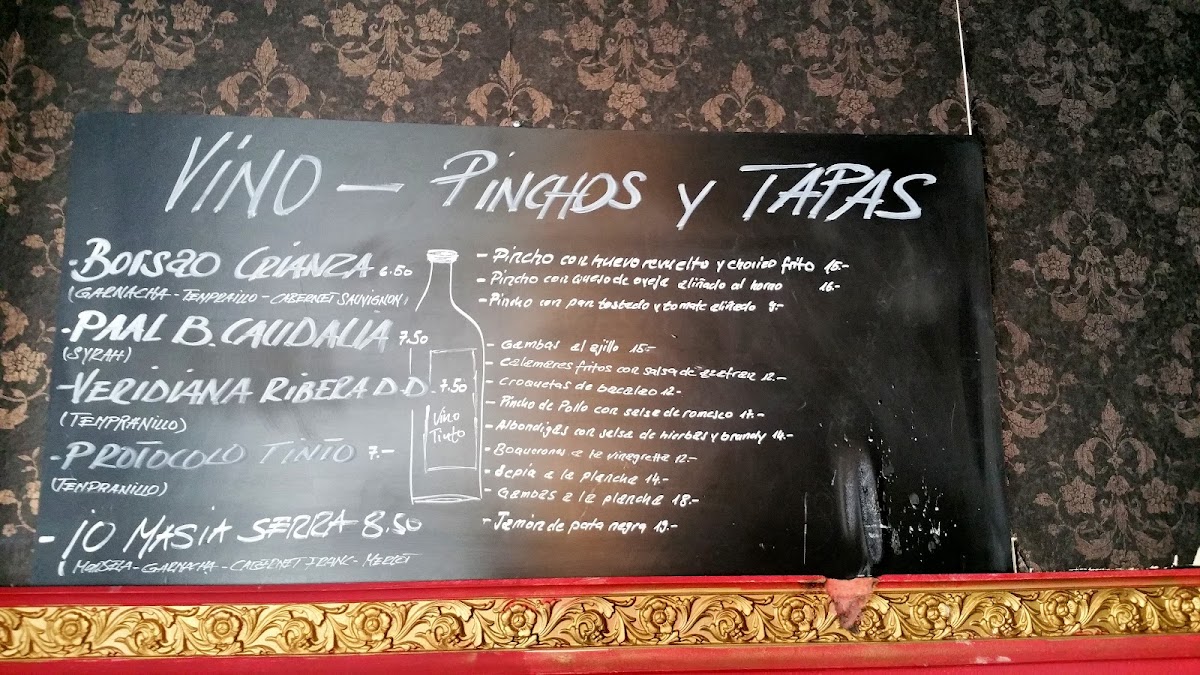 VINO — PINCHOS y TAPAS
- BORSAO CRIANZA 6.50
(GARNACHA - TEMPRAILLO - CABERNET SAUVIGNON)
- PAAL B. CAUDALIA 7.50
(SYRAH)
- VERIDIANA RIBERA D.D. 7.50
(TEMPRANILLO)
- PROTOCOLO TINTO 7.-
(TEMPRANILLO)
- IO MASIA SERRA 8.50
GARNACHA - CABERNET FRANC - MERLOT
Vino
Tinto
- Pincho con huevo revuelto y chorizo frito 15.-
- Pincho con queso de oveja aliñado al horno 16.-
- Pincho con pan tostado y tomate aliñado
- Gambas al ajillo 15.-
- Calamares fritos con salsa de azafran 12.-
- Croquetas de bacalao 12.-
- Pincho de Pollo con salsa de romesco 17.-
- Albondigas con salsa de hierbas y brandy 14.-
- Boquerones a la vinagretta 12.-
- Sepia a la plancha 14.-
- Gambas a la plancha 18.-
- Jamon de pata negra 19.-